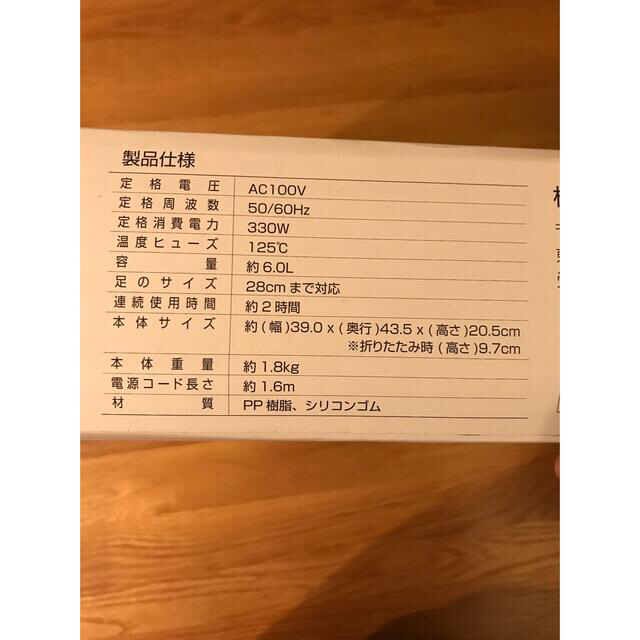 製品仕様
定格電圧 AC100V
定格周波数 50/60Hz
定格消費電力 330W
温度ヒューズ 125℃
容量 約6.0L
足のサイズ 28cmまで対応
連続使用時間 約2時間
本体サイズ 約(幅)39.0 x (奥行)43.5 x (高さ)20.5cm
※折りたたみ時(高さ)9.7cm
本体重量 約1.8kg
電源コード長さ 約1.6m
材質 PP樹脂、シリコンゴム